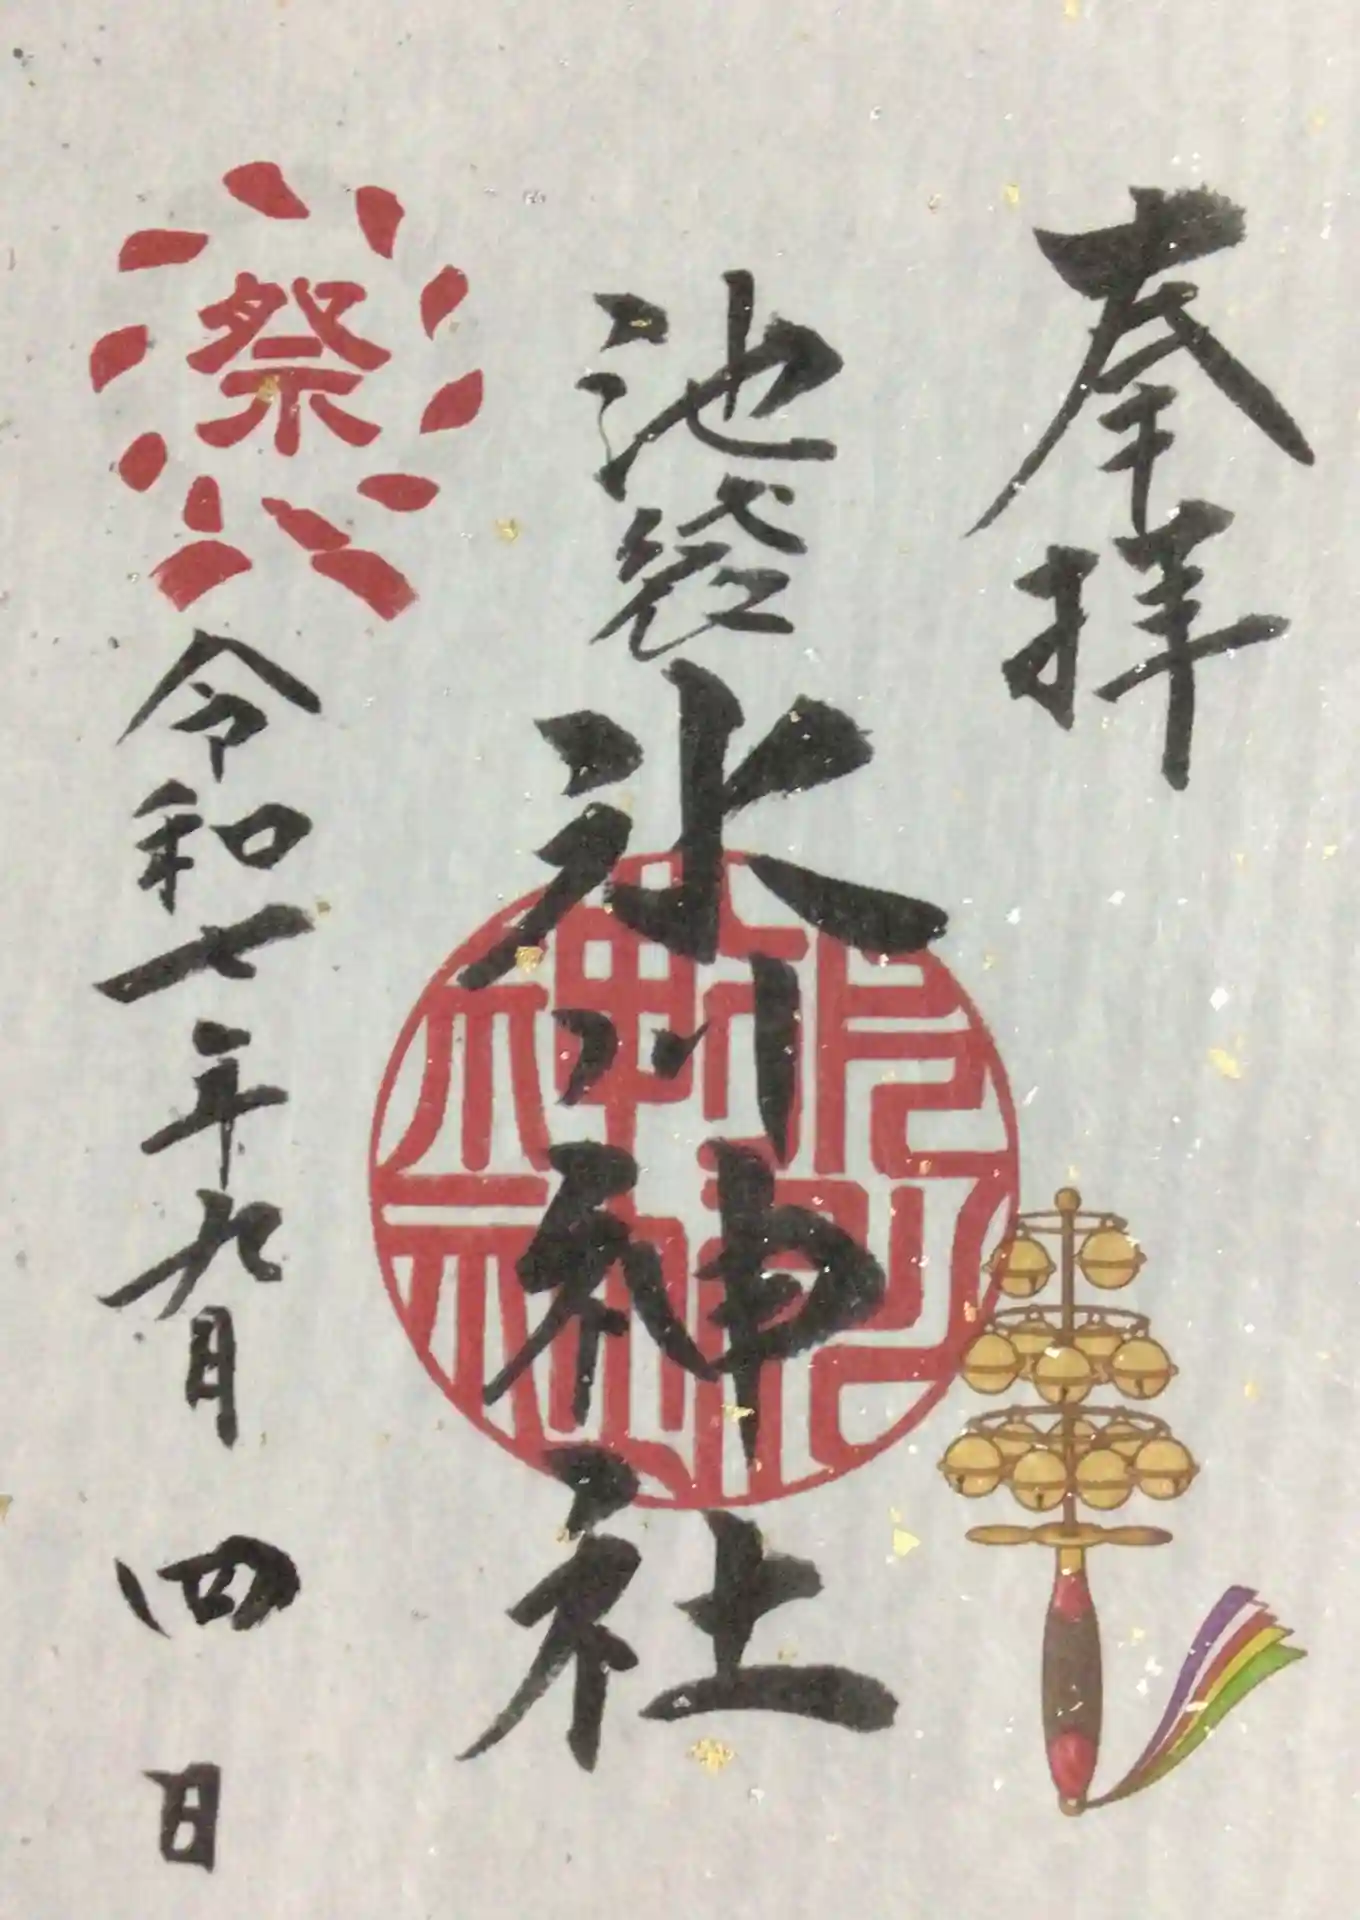 奉拝
池袋氷川神社
祭
令和七年九月四日